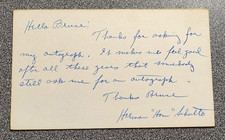 Hello Bruce!
Thanks for asking for
my autograph. It makes me feel good
after all these years that somebody
still ask me for an autograph.
Thanks Bruce
Herman "Ham" Schulte